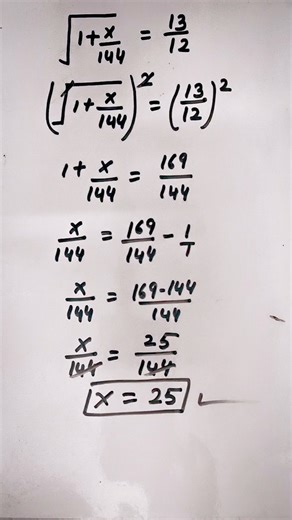 √(1 + x/144) = 13/12
(√(1 + x/144))² = (13/12)²
1 + x/144 = 169/144
x/144 = 169/144 - 1/1
x/144 = 169-144/144
x/144 = 25/144
x = 25